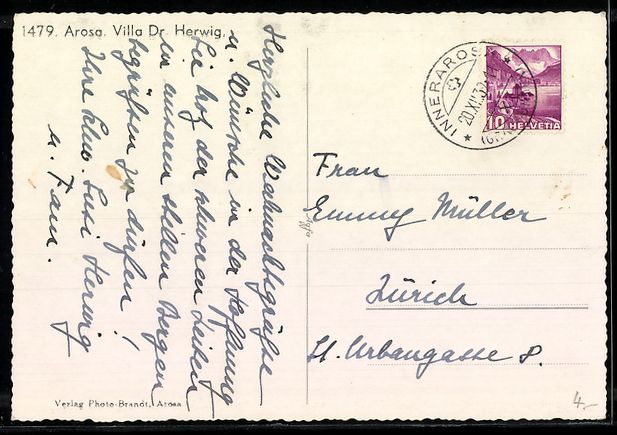 1479. Arosa. Villa Dr. Herwig.
Herzliche Weihnachtsgrüsse
u. Wünsche in der Hoffnung
Sie trotz der schweren Zeiten
in unseren stillen Bergen
begrüßen zu dürfen!
Ihre Schw. Susi Herwig
u. Fam.
Verlag Photo-Brandt, Arosa
INNERAROSA
20.XII.39
10 HELVETIA
Frau
Emmy Müller
Zürich
St. Urbangasse 8.
4.-